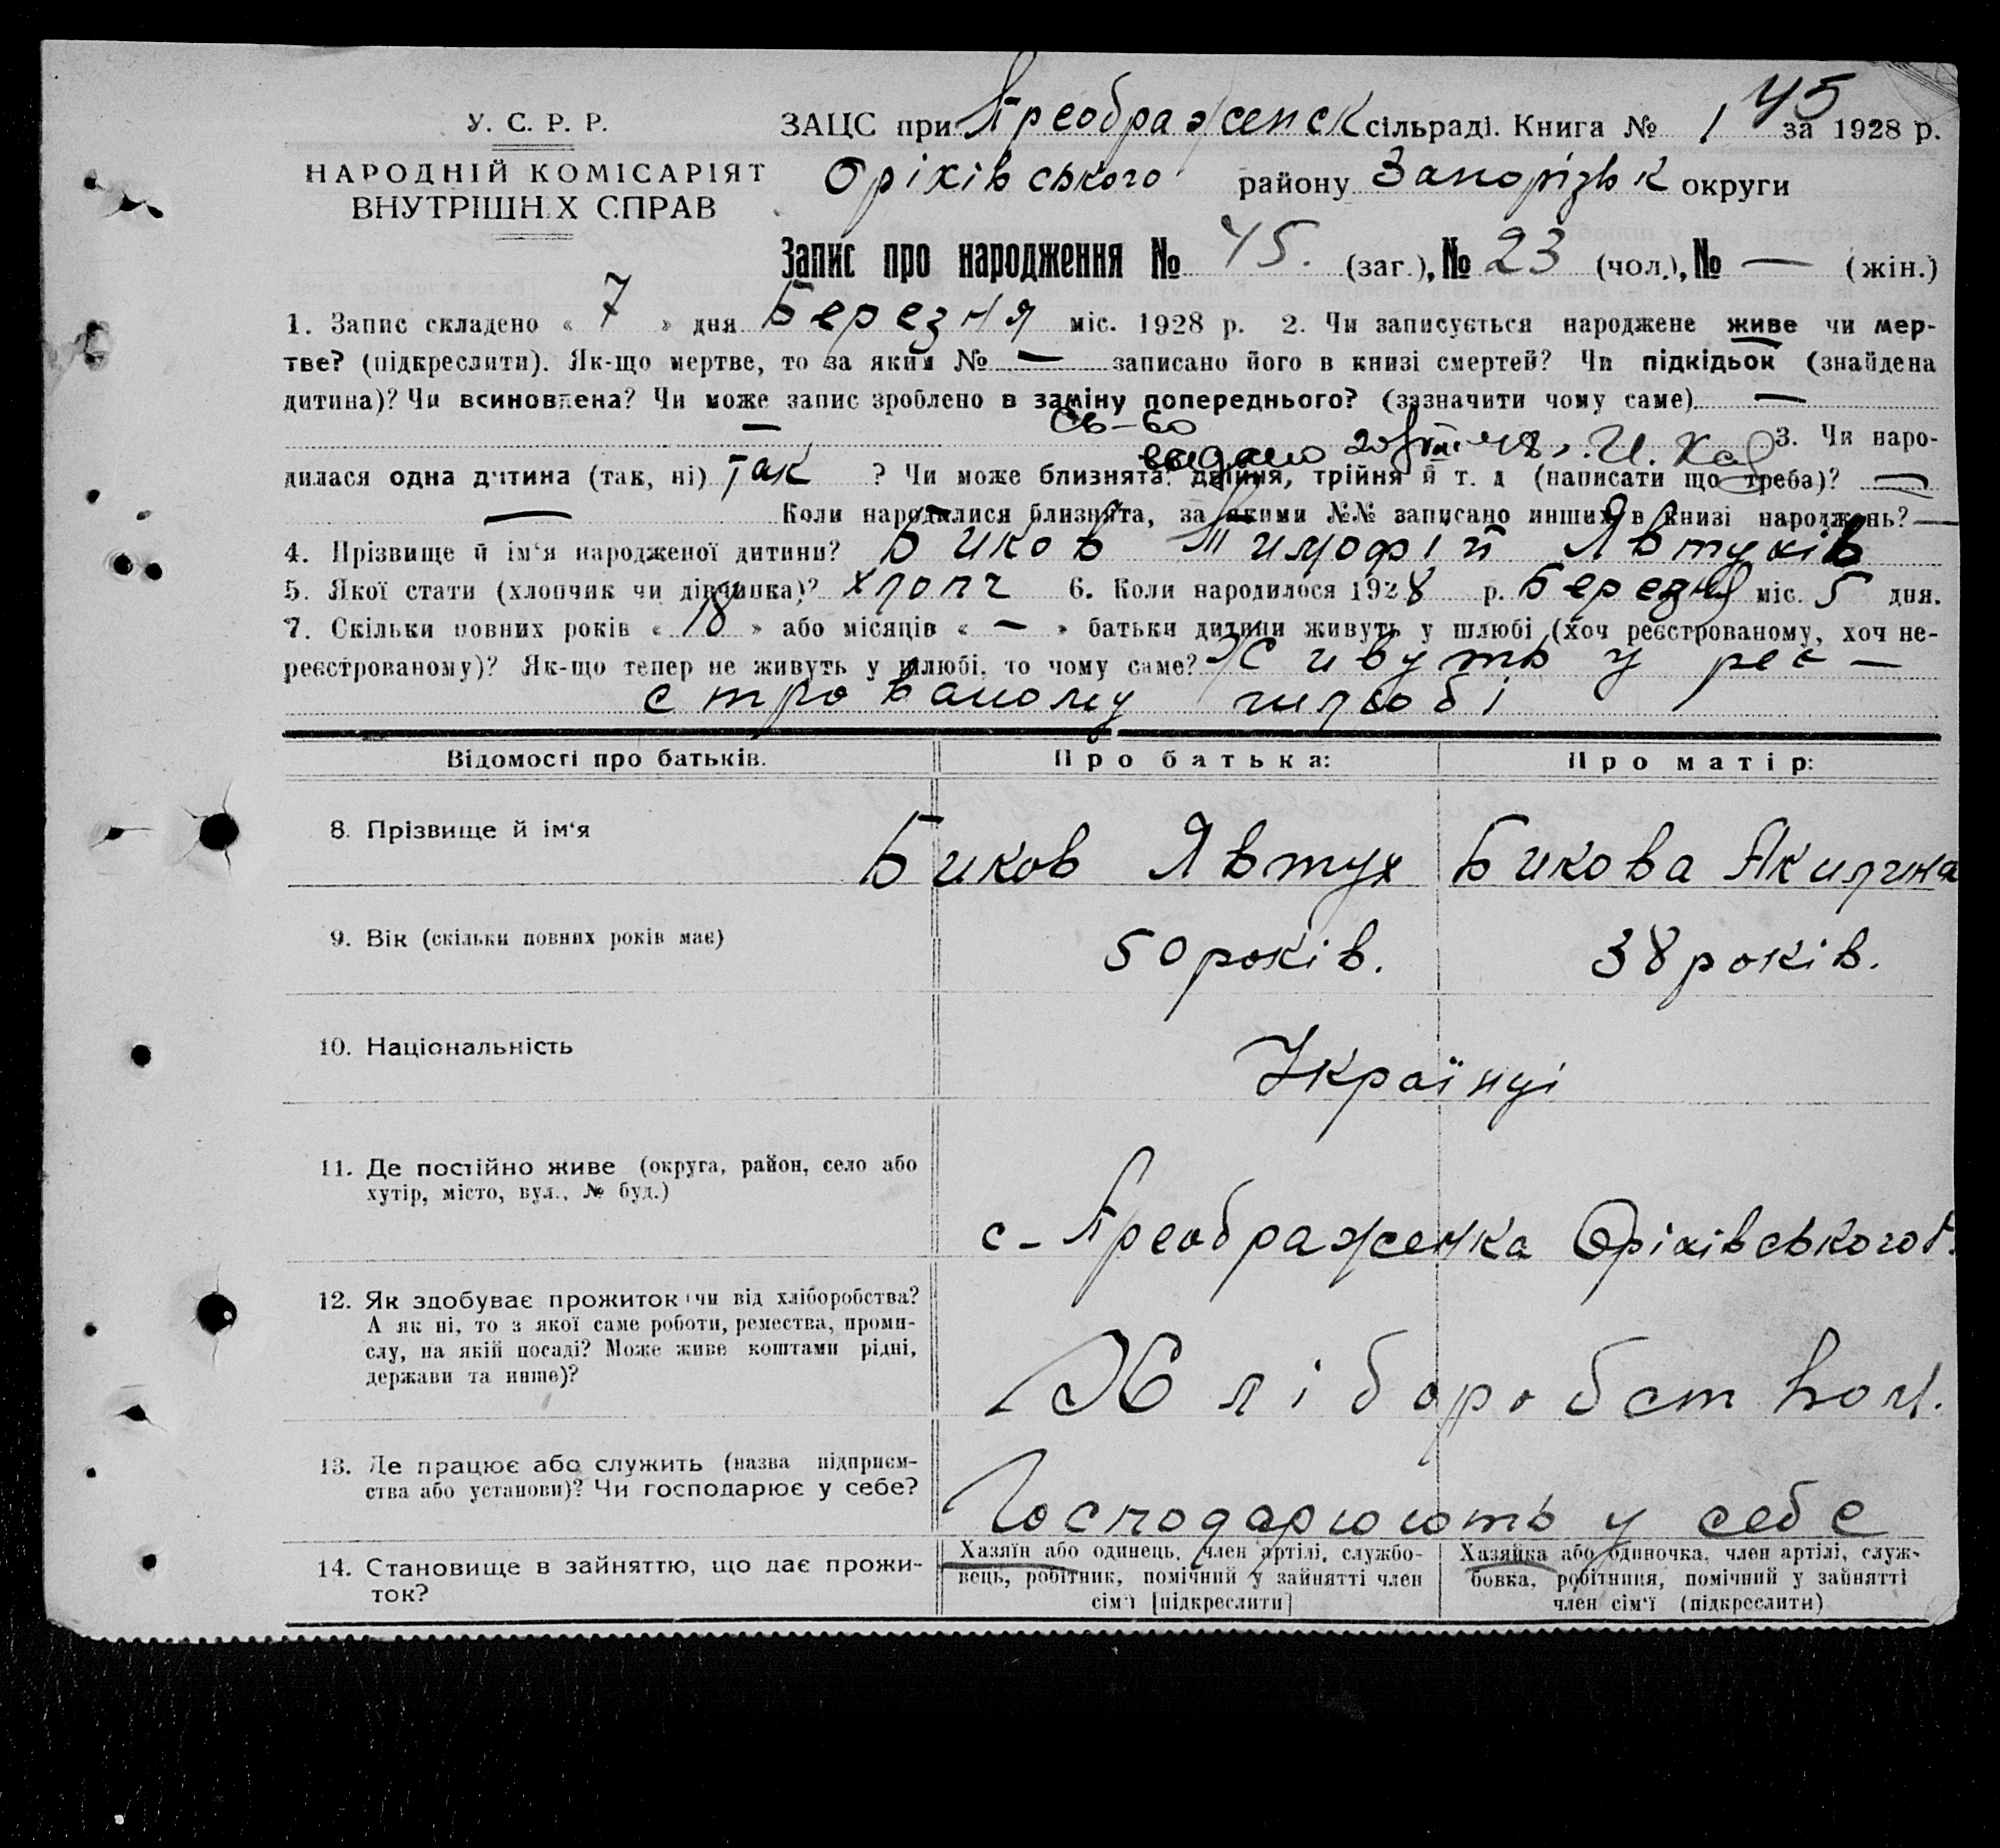 45
У. С. Р. Р.
НАРОДНІЙ КОМІСАРІЯТ
ВНУТРІШНІХ СПРАВ
ЗАЦС при Преображенск сільраді. Книга № 1 за 1928 р.
Оріхівського району Запорізьк округи
Запис про народження № 45. (заг.), № 23 (чол.), № — (жін.)
1. Запис складено « 7 » дня Березня міс. 1928 р. 2. Чи записується народжене живе чи мер-
тве? (підкреслити). Як-що мертве, то за яким № — записано його в книзі смертей? Чи підкідьок (знайдена
дитина)? Чи всиновлена? Чи може запис зроблено в заміну попереднього? (зазначити чому саме) —
— св-во
видано 3. Чи наро-
дилася одна дитина (так, ні) так ? Чи може близнята: двійня, трійня й т. д (написати що треба)? —
— Коли народилися близнята, за якими №№ записано инших в книзі народжень? —
4. Прізвище й ім‘я народженої дитини? Биков Тимофій Явтухів
5. Якої стати (хлопчик чи дівчинка)? хлопч 6. Коли народилося 1928 р. Березня міс. 5 дня.
7. Скільки повних років « 18 » або місяців « — » батьки дитини живуть у шлюбі (хоч реєстрованому, хоч не-
реєстрованому)? Як-що тепер не живуть у шлюбі, то чому саме? Живуть у реє —
строваному шлюбі
Відомості про батьків. Про батька: Про матір:
8. Прізвище й ім‘я Биков Явтух Бикова Якилина
9. Вік (скільки повних років має) 50 років. 38 років.
10. Національність Українці
11. Де постійно живе (округа, район, село або
хутір, місто, вул., № буд.)
с - Преображенка Оріхівського р.
12. Як здобуває прожиток чи від хліборобства?
А як ні, то з якої саме роботи, ремества, проми-
слу, на якій посаді? Може живе коштами рідні,
держави та инше)?
Хліборобством.
13. Де працює або служить (назва підприєм-
ства або установи)? Чи господарює у себе?
Господарюють у себе
14. Становище в зайняттю, що дає прожи-
ток?
Хазяїн або одинець, член артілі, службо-
вець, робітник, помічний у зайнятті член
сім‘ї [підкреслити]
Хазяйка або одиночка, член артілі, служ-
бовка, робітниця, помічний у зайнятті
член сім‘ї (підкреслити)